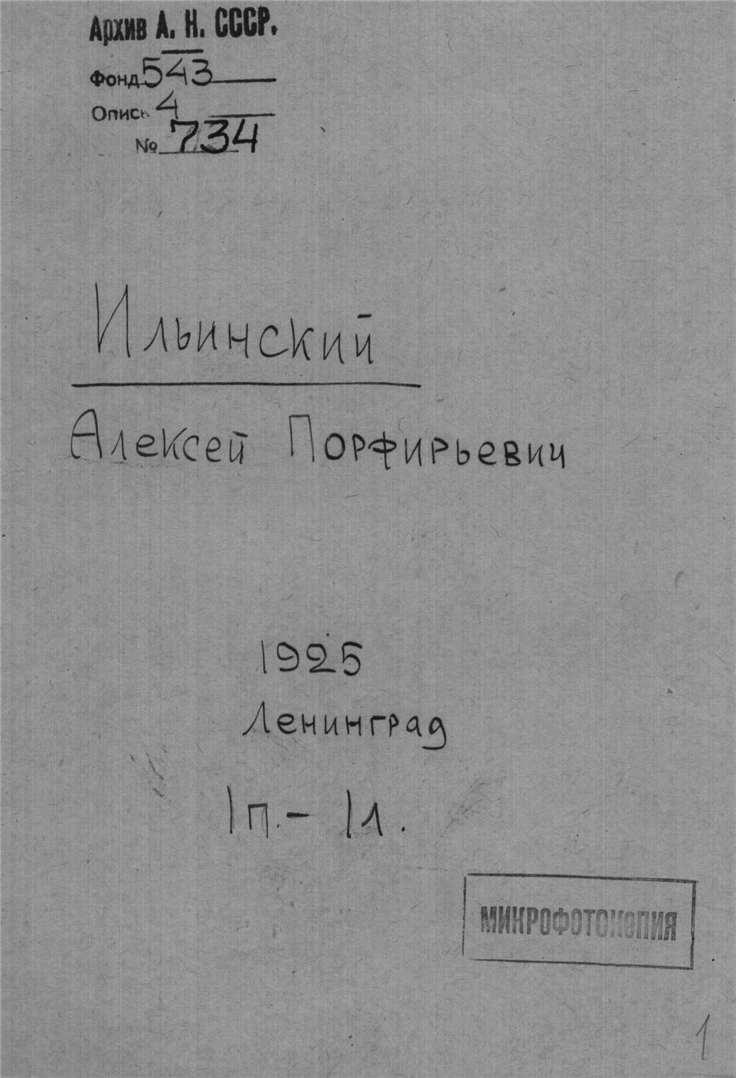 Архив А. Н. СССР.
Фонд 543
Опись 4
№ 734
Ильинский
Алексей Порфирьевич
1925
Ленинград
1п. - 1л.
МИКРОФОТОКОПИЯ
1